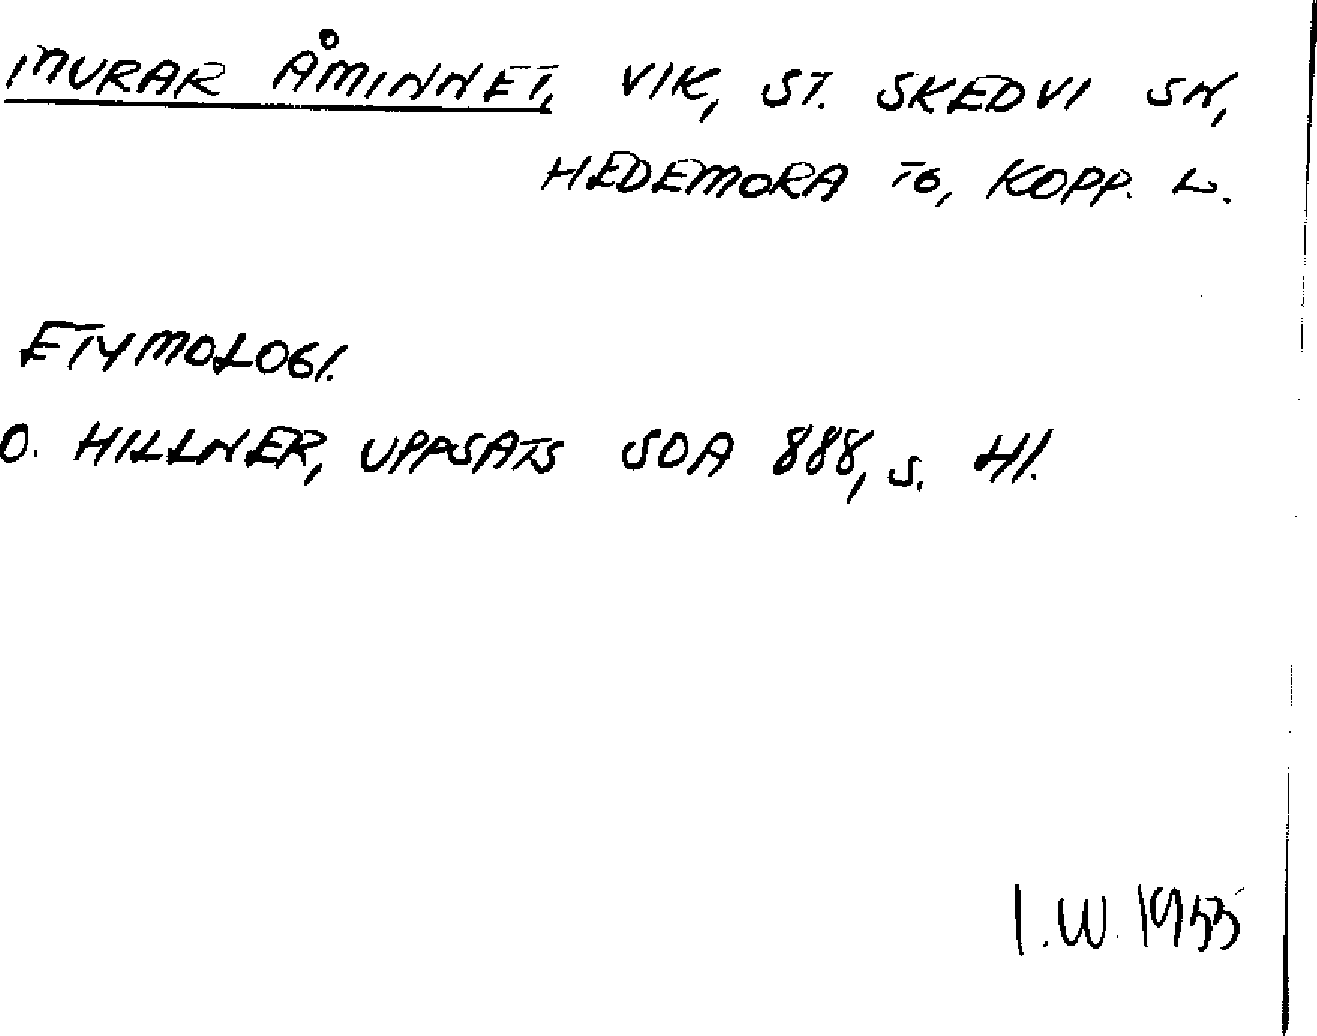 MURAR ÅMINNET, VIK, ST. SKEDVI SN,
HEDEMORA TG, KOPP. L.
ETYMOLOGI.
O. HILLNER, UPPSATS SOA 888, S. 41.
I.W. 1955